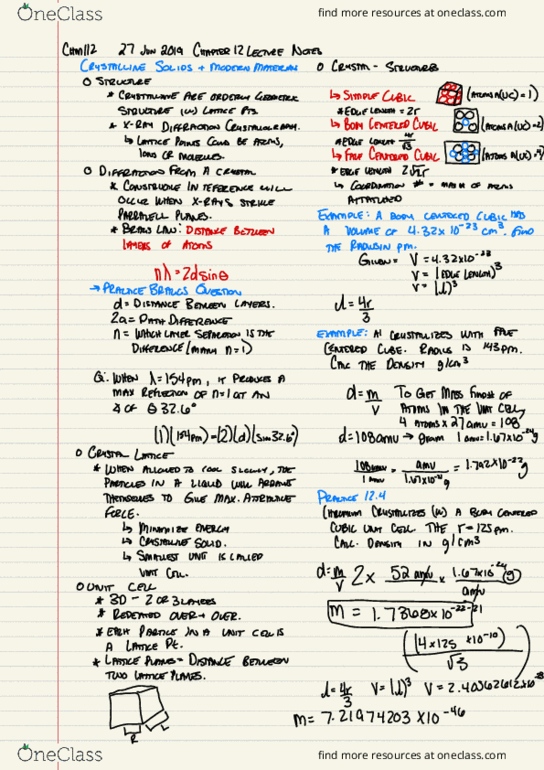 OneClass
find more resources at oneclass.com
CHM112 27 JUN 2019 CHAPTER 12 LECTURE NOTES
CRYSTALLINE SOLIDS + MODERN MATERIAL
O STRUCTURE
* CRYSTALLINE ARE ORDERLY GEOMETRIC
STRUCTURE (W) LATTICE PTS.
* X-RAY DIFFRACTION CRYSTALOGRAPH.
↳ LATTICE POINTS COULD BE ATOMS,
IONS OR MOLECULES.
O DIFFRACTION FROM A CRYSTAL
* CONSTRUCTIVE IN REFERENCE WILL
OCCUR WHEN X-RAYS STRIKE
PARRALELL PLANES.
* BRAGS LAW: DISTANCE BETWEEN
LAYERS OF ATOMS
nλ = 2d sin θ
→ PRACTICE BRAGGS QUESTION
d = DISTANCE BETWEEN LAYERS.
2a = PATH DIFFERENCE
n = WHICH LAYER SEPARATION IS THE
DIFFERENCE (MAINLY n=1)
Q: WHEN λ=154pm, IT PRODUCES A
MAX REFLECTION OF n=1 AT AN
∡ OF θ 32.6°
(1)(154pm)=(2)(d)(sin 32.6°)
O CRYSTAL LATTICE
* WHEN ALLOWED TO COOL SLOWLY, THE
PARTICLES IN A LIQUID WILL ARRANGE
THEMSELVES TO GIVE MAX. ATTRACTIVE
FORCE.
↳ MINIMIZE ENERGY
↳ CRYSTALINE SOLID.
↳ SMALLEST UNIT IS CALLED
UNIT CELL.
O UNIT CELL
* 3D - 2 OR 3 LAYERS
* REPEATED OVER + OVER.
* EACH PARTICLE IN A UNIT CELL IS
A LATTICE PT.
* LATTICE PLANES = DISTANCE BETWEEN
TWO LATTICE PLANES.
R
L
O CRYSTAL - STRUCTURES
↳ SIMPLE CUBIC (ATOMS A(UC) = 1)
* EDGE LENGTH = 2r
↳ BODY CENTERED CUBIC (ATOMS A(UC) = 2)
* EDGE LENGTH 4r/√3
↳ FACE CENTERED CUBIC (ATOMS A(UC) = 4)
* EDGE LENGTH 2√2r
↳ COORDINATION # = OF ATOMS
EXAMPLE: A BODY CENTERED CUBIC HAS
A VOLUME OF 4.32 x 10⁻²³ cm³. FIND
THE RADIUS IN PM.
GIVEN = V = 4.32x10⁻²³
V = (EDGE LENGTH)³
V = (L)³
d = 4r/3
EXAMPLE: Al CRYSTALIZES WITH FACE
CENTERED CUBE. RADIUS IS 143pm.
CALC THE DENSITY g/cm³
d = m/V TO GET MASS FIND # OF
ATOMS IN THE UNIT CELL
4 ATOMS x 27 amu = 108
d = 108 amu → gram 1 amu = 1.67x10⁻²⁴g
108 amu / 1 amu = amu / 1.67x10⁻²⁴g = 1.792 x 10⁻²²g
PRACTICE 12.4
CHROMIUM CRYSTALIZES (W) A BODY CENTERED
CUBIC UNIT CELL THE r=125pm.
CALC. DENSITY IN g/cm³
d = m/V 2x 52 amu x 1.67x10⁻²⁴ (g) / amu
m = 1.7368 x 10⁻²²
((4 x 125 x 10⁻¹⁰) / √3)
d = 4r/3 V = (L)³ V = 2.403626612x10
m = 7.21974203 x 10⁻⁴⁶
OneClass
find more resources at oneclass.com